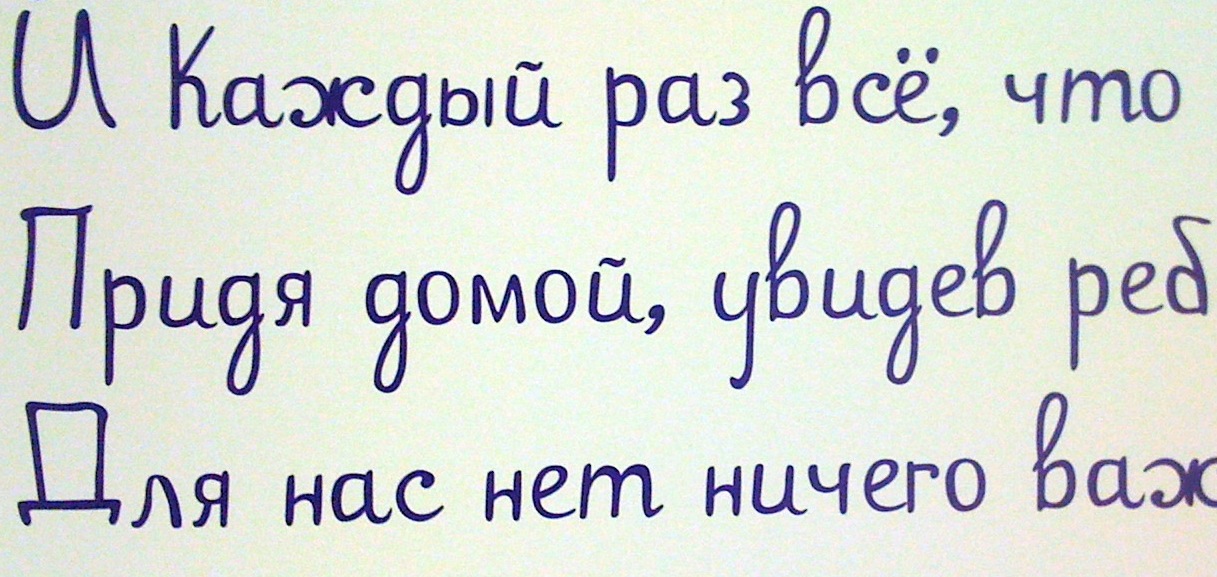 И Каждый раз всё, что
Придя домой, увидев реб
Для нас нет ничего важ